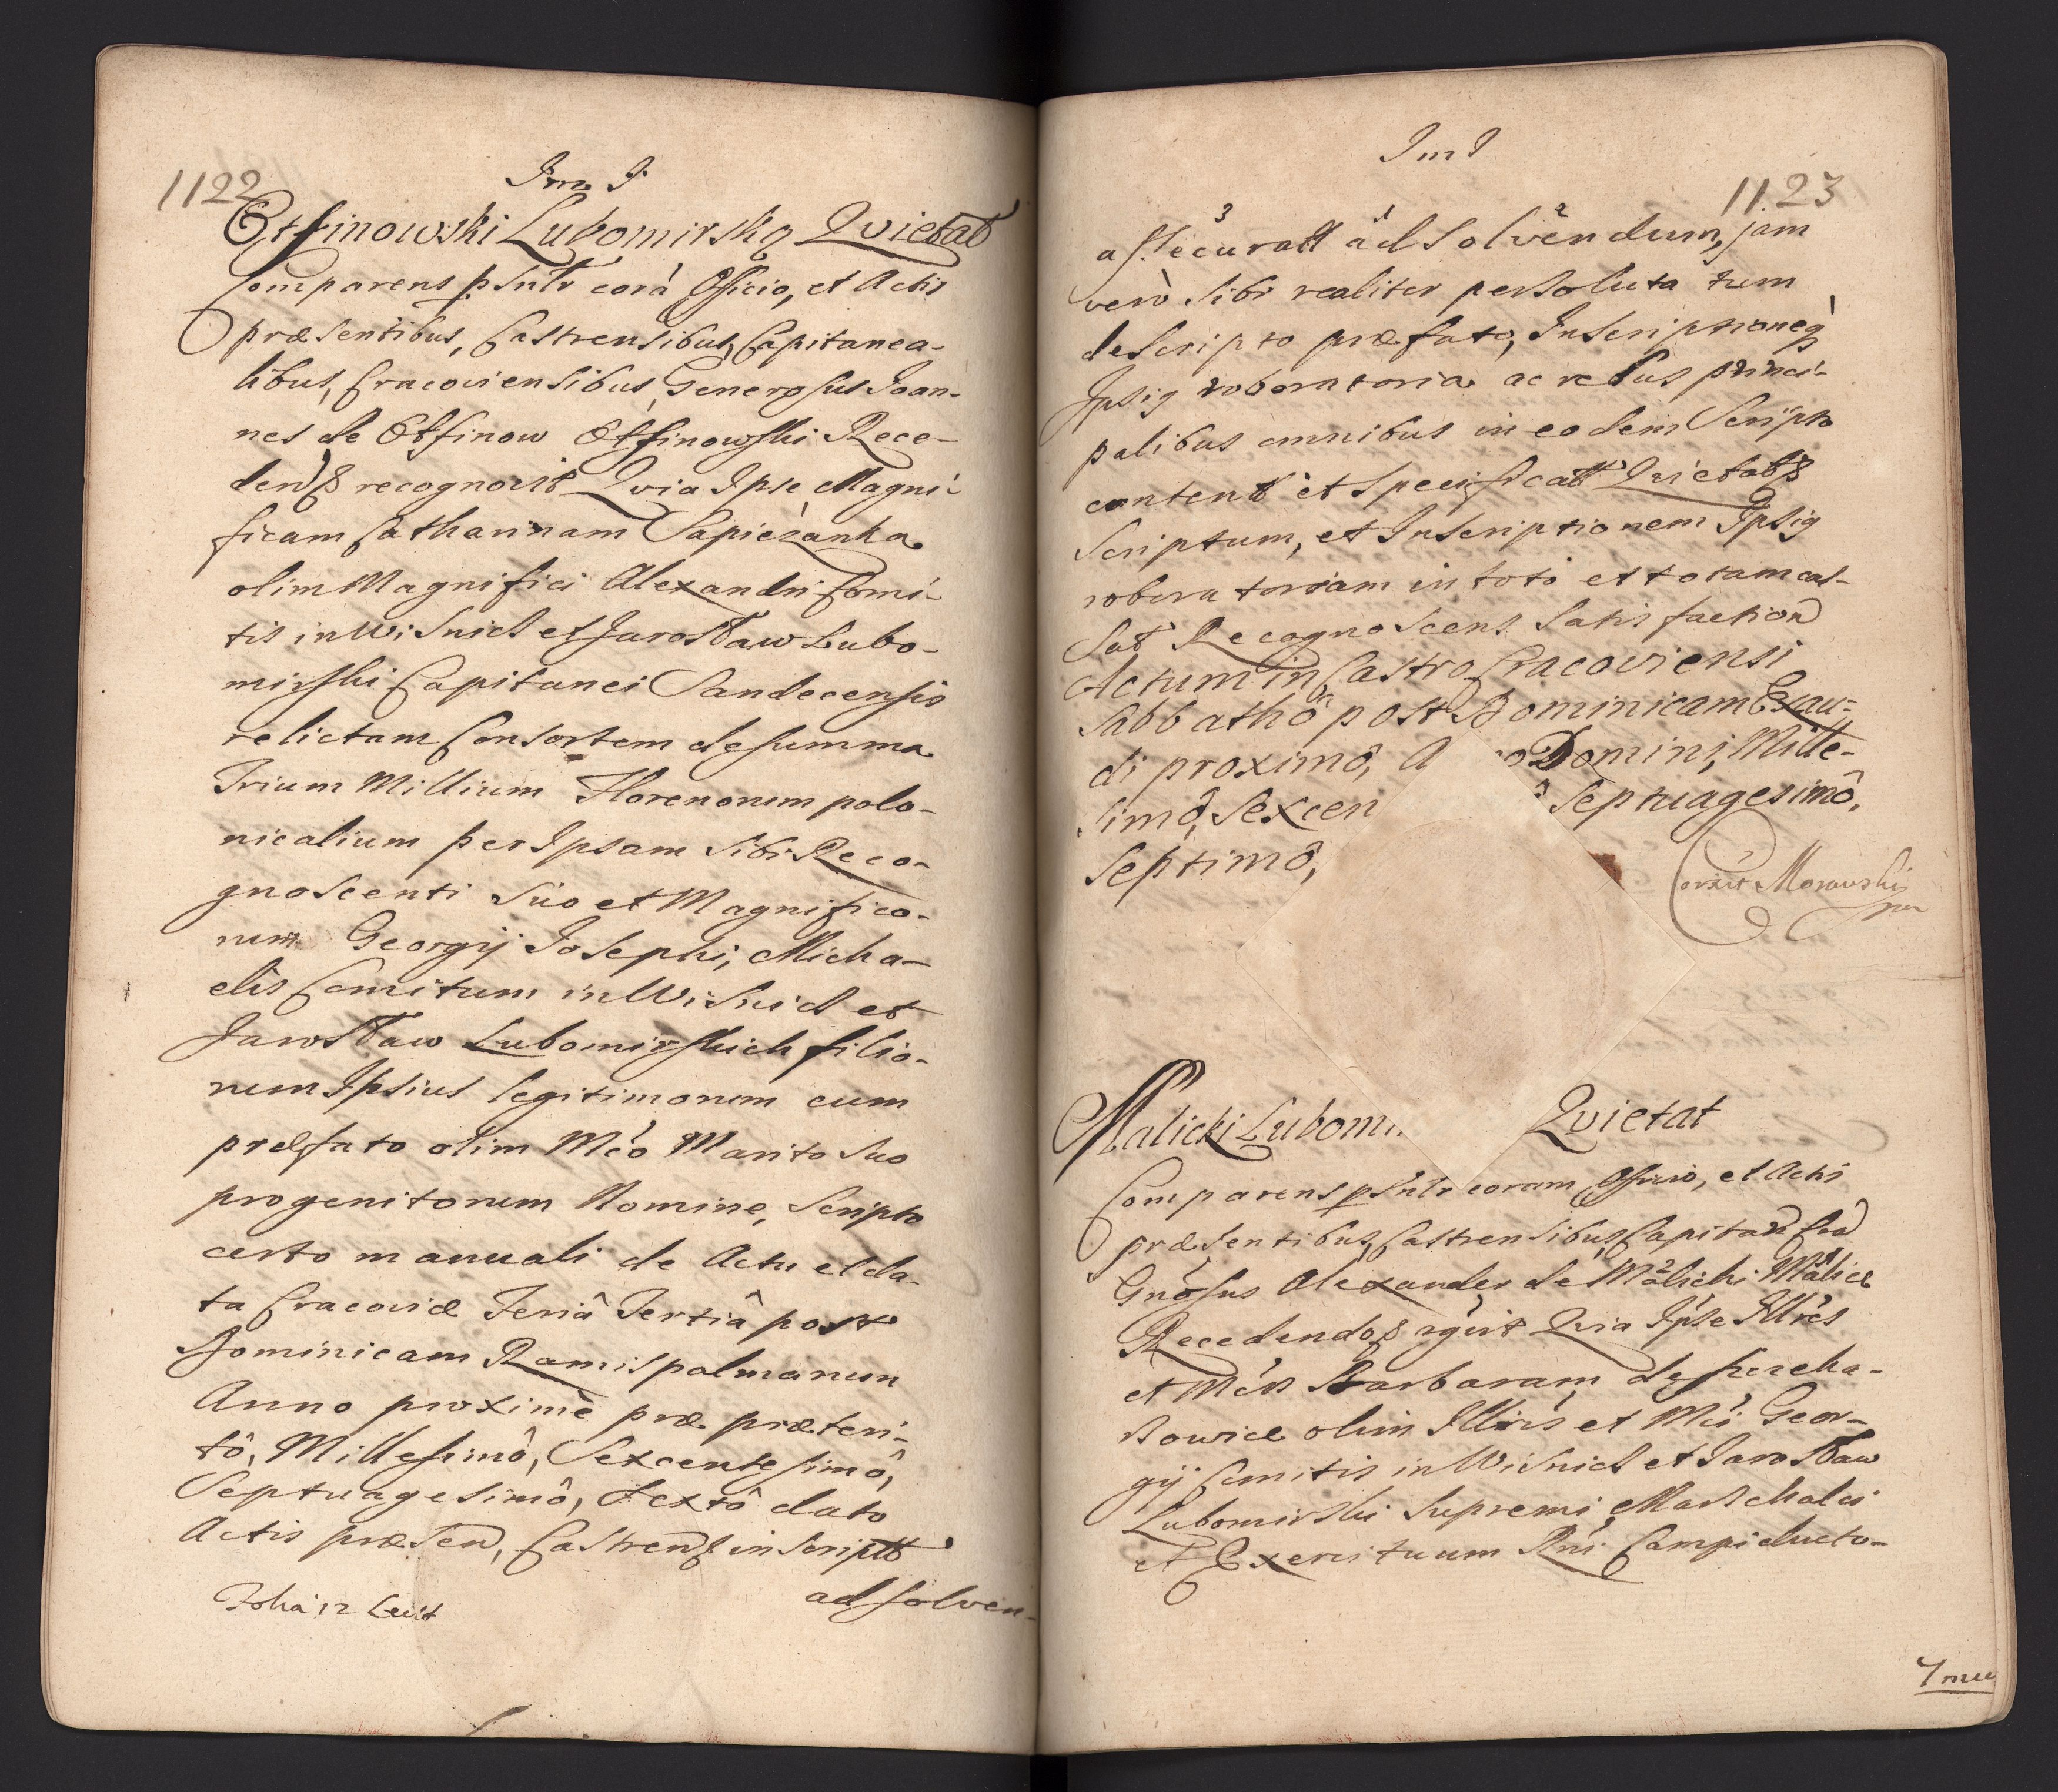 1122
Im J
Otffinowski Lubomirską Qvietat
Comparens psntr corà Officio, et Actis
præsentibus, Castrensibus, Capitanea-
libus, Cracoviensibus, Generosus Joan-
nes de Otffinow Otffinowski Rece-
dend recognovit Qvia Ipse Magni-
ficam Catharinam Sapiezanka
olim Magnifici Alexandri Comi-
tis in Wisnicz et Jarosław Lubo-
mirski Capitanei Sandecensis
relictam Consortem de summa
Trium Millium Florenorum polo-
nicalium per Ipsam sibi Reco-
gnoscenti suo et Magnifico-
rum Georgij Josephi, Micha-
elis Comitum in Wisnicz et
Jarosław Lubomirskich filio-
rum Ipsius legitimorum cum
præfato olim Mco Marito suo
progenitorum Nomine, Scripto
certo manuali de Actu et da-
ta Cracoviæ Feriâ Tertiâ post
Dominicam Ramispalmarum
Anno proximè præ præteri-
tô, Millesimô, Sexcentesimô,
Septuagesimô, Sextô dato
Actis præsen, Castren inscriptt
ad solven-
Im J
1123
assecuratt ad solvendum, jam
verò sibi realiter persoluta tum
de Scripto præfato, Inscriptioneq
Ipsig roboratoria ac rebus princi-
palibus omnibus in eodem Scripto
content et specificatt Qvietat
Scriptum, et Inscriptionem Ipsig
roboratoriam in toto et totam cas-
sat Recognoscens Satisfaction
Actum in Castro Cracoviensi
Sabbathô post Dominicam Exau-
di proximô, A no Domini, Mille-
simô, Sexcen ô Septuagesimô,
Septimô,
Corexit Morawski
mp
Malicki Lubomi Qvietat
Comparens psntr coram Officio, et Actis
præsentibus, Castrensibus, Capitan Cra
Gnosus Alexander de Malicki Malice
Recedendo rgvit Qvia Ipse Illres
et Mcas Barbaram de
olim Illris et Mci Geor-
gij Comitis in Wisnicz et Jarosław
Lubomirski Supremi Marschalci
et Exercituum Rni Campiducto-